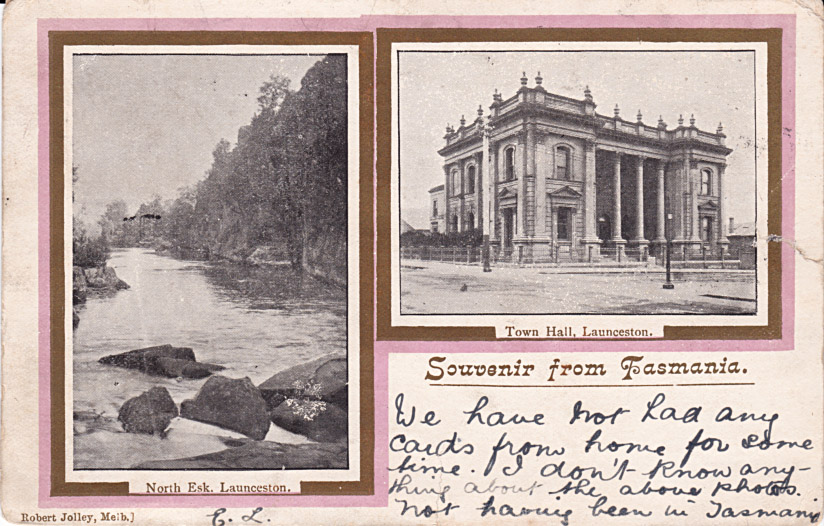 North Esk. Launceston.
Town Hall, Launceston.
Souvenir from Tasmania.
We have not had any
cards from home for some
time. I don't know any-
thing about the above photos.
not having been in Tasmania
Robert Jolley, Melb.]
C. L.